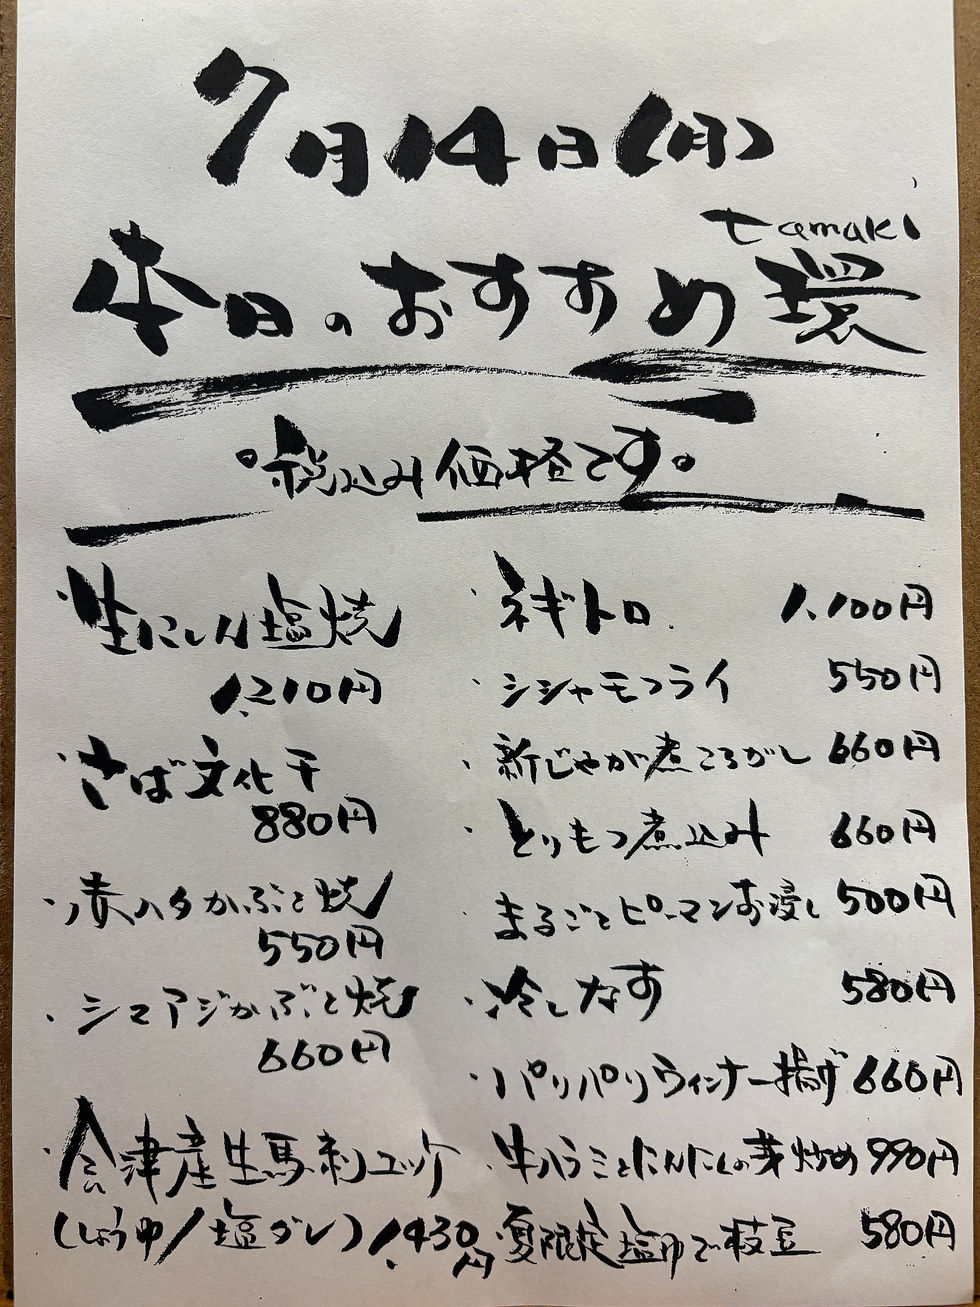 7月14日(月)
tamaki
本日のおすすめ 環
。税込み価格です。
・生にしん塩焼
1,210円
・さば文化干
880円
・赤ハタかぶと焼
550円
・シマアジかぶと焼
660円
・会津産生馬刺ユッケ
(しょうゆ/塩ダレ) 1,430円
・ネギトロ 1,100円
・シシャモフライ 550円
・新じゃが煮ころがし 660円
・とりもつ煮込み 660円
・まるごとピーマンお浸し 500円
・冷しなす 580円
・パリパリウィンナー揚げ 660円
・牛ハラミとにんにくの芽炒め 990円
・夏限定塩ゆで枝豆 580円